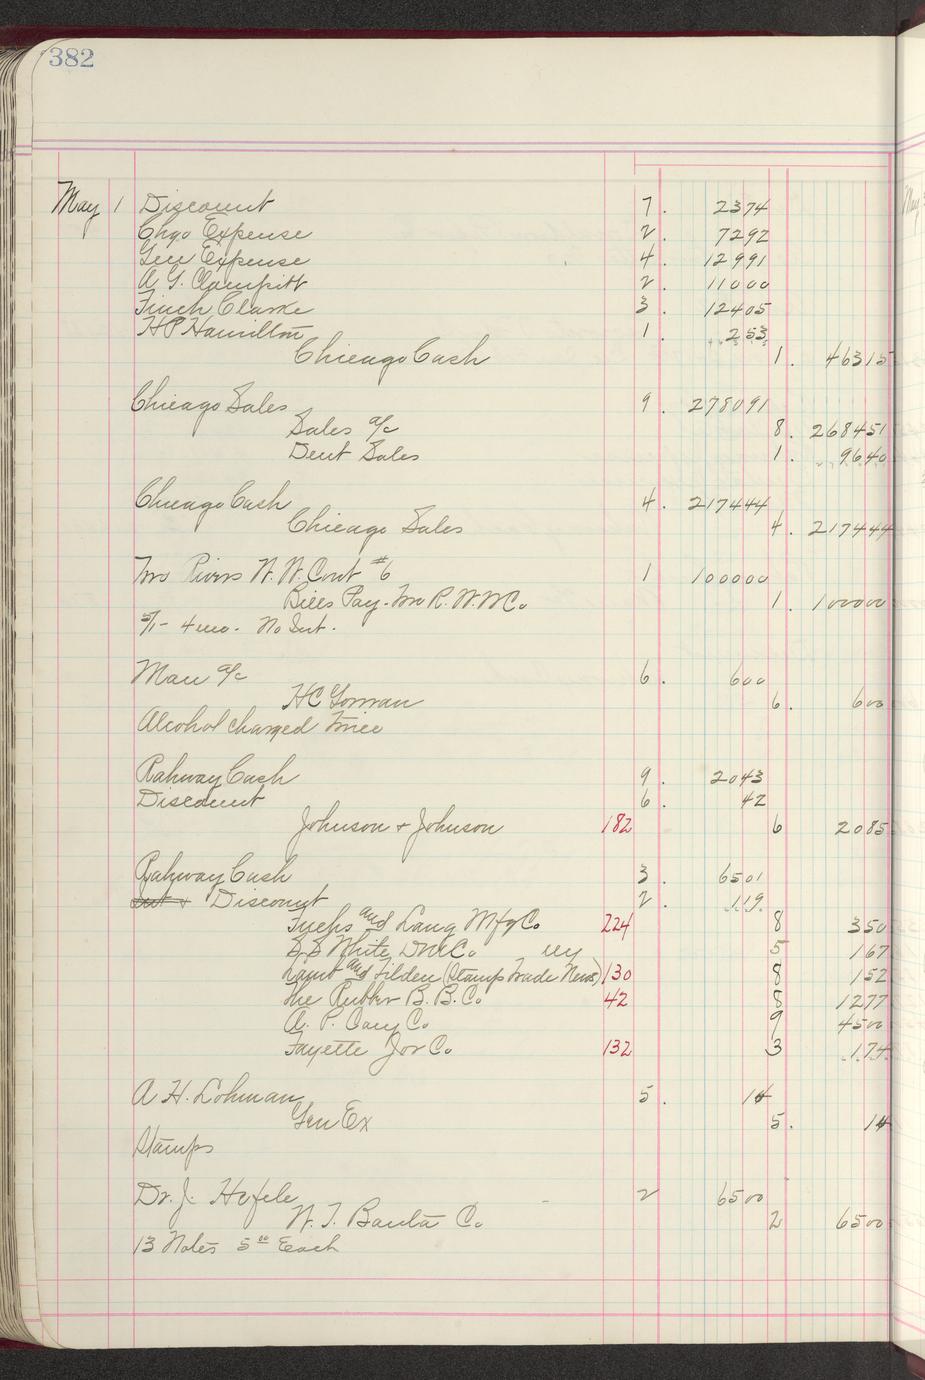 382
May 1 Discount 7. 2374
Chgo Expense 2. 7292
Gen Expense 4. 12991
A G. Clampitt 2. 11000
Finch Clarke 3. 12405
H P Hamilton 1. 253
Chicago Cash 1. 46315
Chicago Sales 9. 278091
Sales a/c 8. 268451
Dent Sales 1. 9640
Chicago Cash 4. 217444
Chicago Sales 4. 217444
Two Rivers W. W. Cont #6 1 100000
Bills Pay. Two R. W. W Co 1. 100000
5/1 - 4 mo. No Int.
Man a/c 6. 600
H C Gorman 6. 600
Alcohol charged twice
Rahway Cash 9. 2043
Discount 6. 42
Johnson & Johnson 182 6 2085
Rahway Cash 3. 6501
Int & Discount 2. 119
Fuchs and Lang Mfg Co 224 8 350
S S White D M Co 5 167
and Tilden (Stamp Trade News) 130 8 152
The Rubber B. B. Co 42 8 1277
A. P. Cary Co 9 4500
Fayette Jor Co 132 3 174
A H. Lohman 5. 14
Gen Ex 5. 14
Stamps
Dr. J. Hefele 2 6500
W. T. Banta Co. 2 6500
13 Notes 5 00 Each